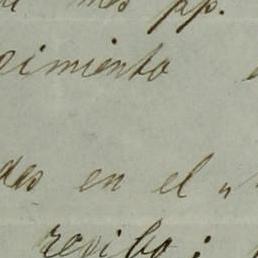 mes pp.
cimiento
das en el "
recibo;